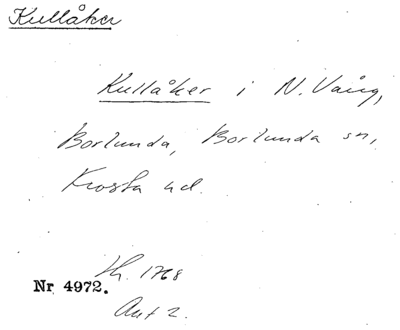 Kullåker
Kullåker i N. Vång,
Borlunda, Borlunda sn,
Frosta hd.
Lh. 1768
Nr 4972.
Akt 2.